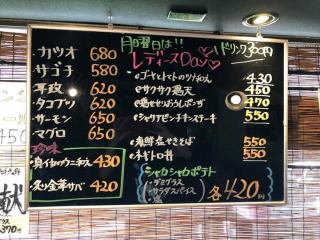 カツオ 680
サゴチ 580
平政 620
タコブツ 620
サーモン 650
マグロ 650
珍味
430
炙り金華サバ 420
月曜日は!!
レディースDay♡
1ドリンク300円
ゴーヤとトマトのツナポン 430
サクサク鶏天 450
鶏せせりおろしポンず 470
シャリアピンチキンステーキ 550
海鮮塩やきそば 550
ネギトロ丼 550
シャカシャカポテト
・デミグラス
・サラダスパイス
・塩
各420円
370円